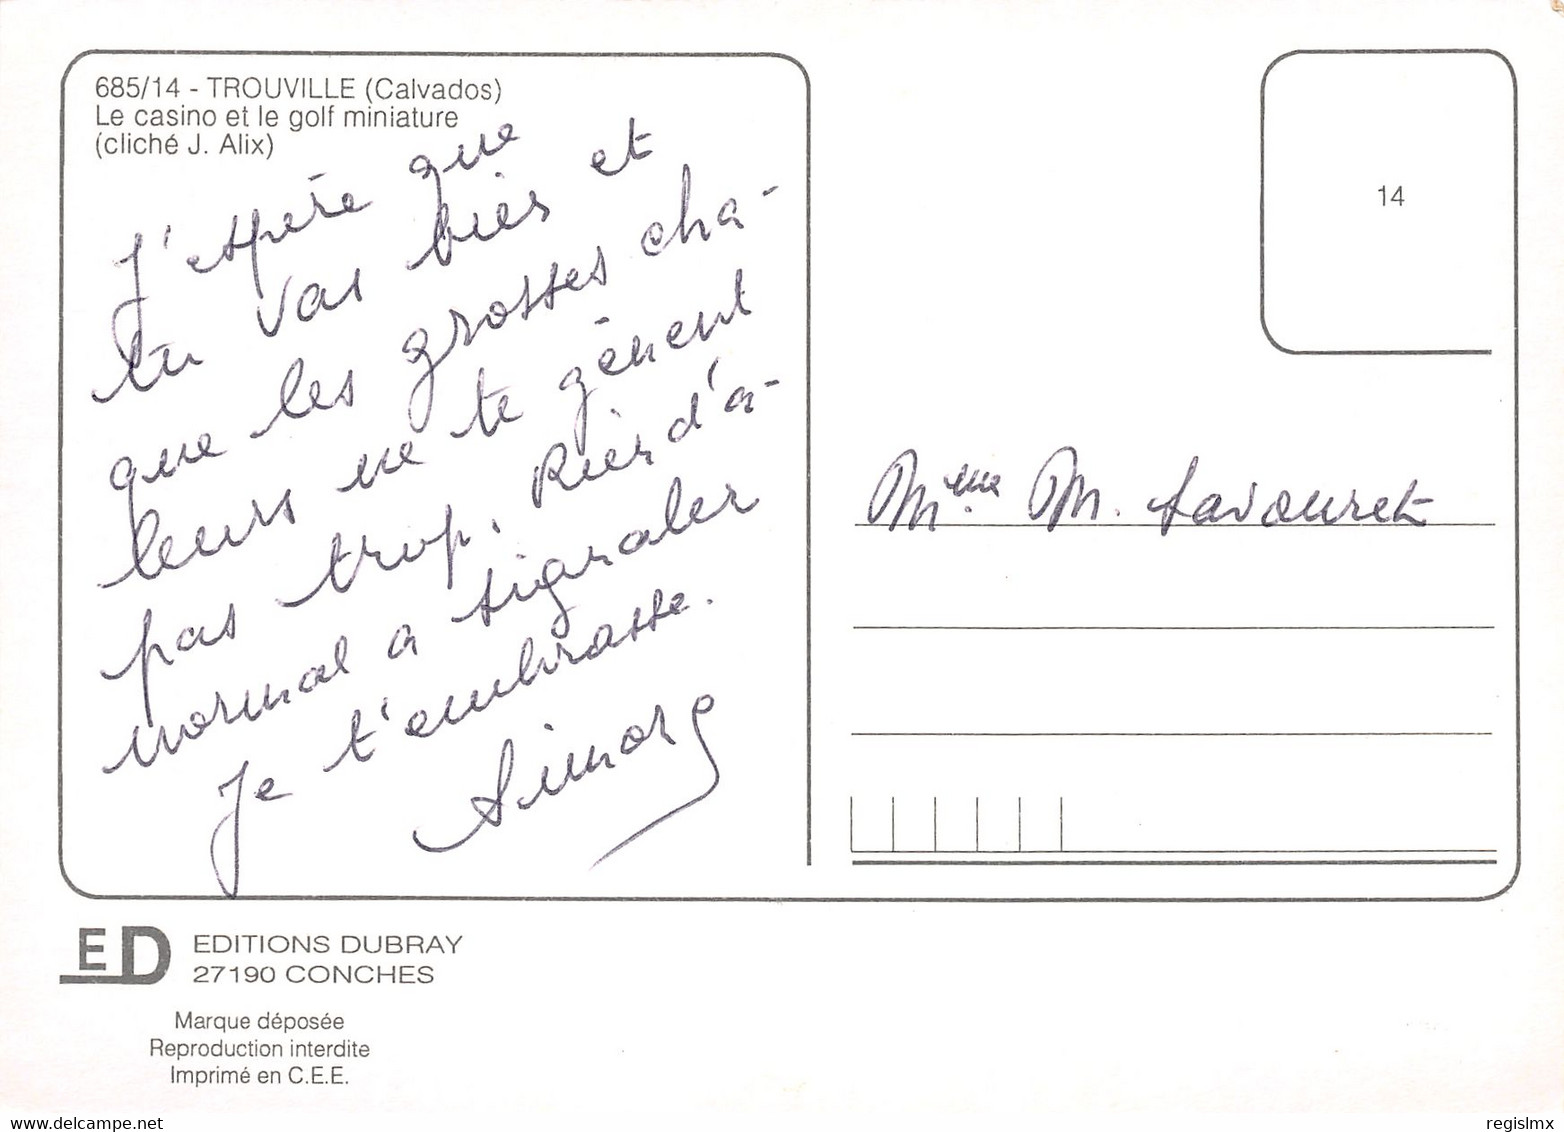 685/14 - TROUVILLE (Calvados)
Le casino et le golf miniature
(cliché J. Alix)
J'espère que
tu vas bien et
que les grosses cha-
leurs ne te gênent
pas trop. Rien d'a-
normal a signaler
Je t'embrasse.
Simone
14
Mme M. Savouret
ED
EDITIONS DUBRAY
27190 CONCHES
Marque déposée
Reproduction interdite
Imprimé en C.E.E.
www.delcampe.net
regislmx